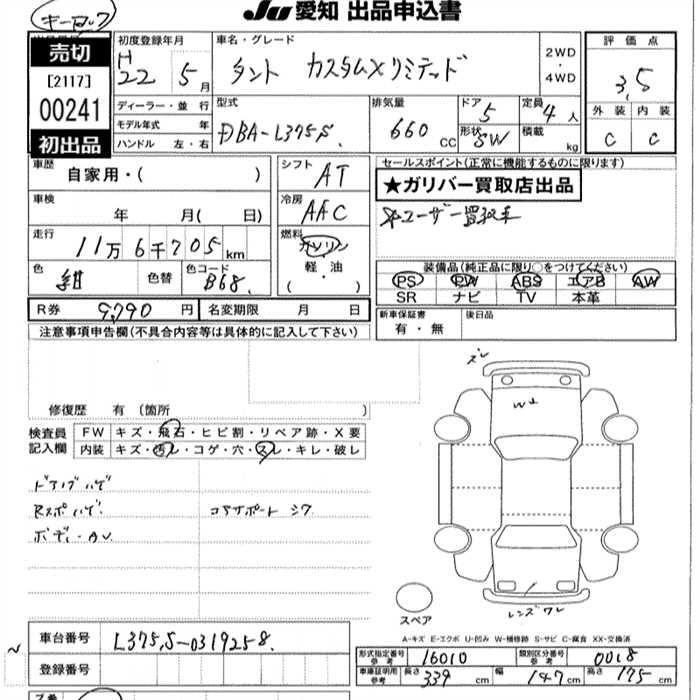 JU 愛知 出品申込書
キーロック
売切
[2117]
00241
初出品
初度登録年月
H 22 5 月
ディーラー・並 行
モデル年式 年
ハンドル 左・右
車名・グレード
タント カスタムXリミテッド
2WD
・
4WD
型式
DBA-L375S
排気量
660 CC
ドア
5
形状
SW
定員
4 人
積載
kg
評価点
3.5
外装 内装
C C
車歴
自家用・( )
車検
年 月( 日)
走行
11万 6千705 km
色
紺
色替
色コード
B68
シフト
AT
冷房
AAC
燃料
ガソリン
軽・油
( ・ )
セールスポイント(正常に機能するものに限ります)
★ガリバー買取店出品
☆ユーザー買取車
装備品(純正品に限り○をつけてください)
PS PW ABS エアB AW
SR ナビ TV 本革
R券 9,790 円
名変期限 月 日
新車保証書
有・無
後日品
注意事項申告欄(不具合内容等は具体的に記入して下さい)
修復歴 有 (箇所 )
検査員
記入欄
FW キズ・飛石・ヒビ割・リペア跡・X要
内装 キズ・汚レ・コゲ・穴・スレ・キレ・破レ
ドアノブハゲ
Rスポハゲ コアサポートシワ
ボディ・AU
ズレ
スペア
レンズワレ
A-キズ E-エクボ U-凹み W-補修跡 S-サビ C-腐食 XX-交換済
車台番号 L375S-0319258
登録番号
形式指定番号
参考
16010
類別区分番号
参考
0018
車庫証明用
参考
長さ 339 cm 幅 147 cm 高さ 175 cm